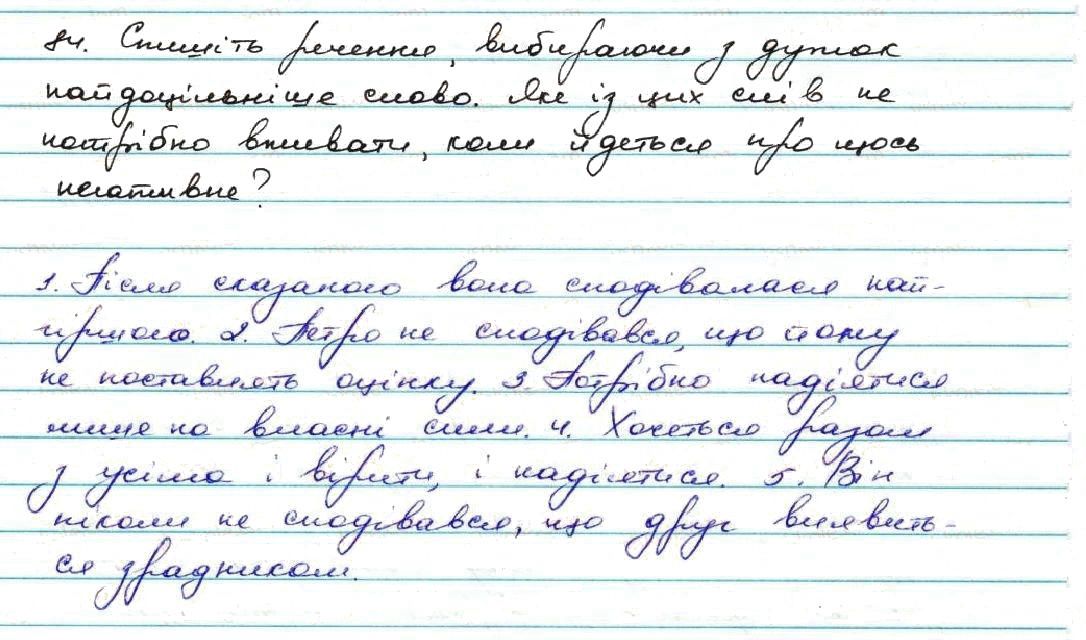 84. Спишіть речення, вибираючи з дужок
найдоцільніше слово. Яке із цих слів не
потрібно вживати, коли йдеться про щось
негативне?
1. Після сказаного вона сподівалася най-
гіршого. 2. Петро не сподівався, що йому
не поставлять оцінку. 3. Потрібно надіятися
лише на власні сили. 4. Хочеться разом
з усіма і вірити, і надіятися. 5. Він
ніколи не сподівався, що друг виявить-
ся зрадником.